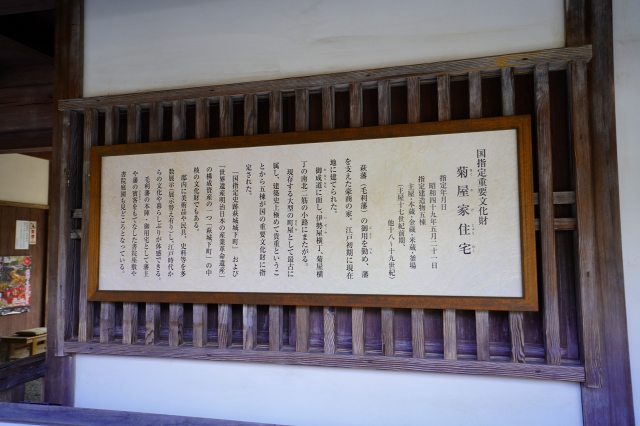 国指定重要文化財
菊屋家住宅
指定年月日
昭和四十九年五月二十一日
指定建造物五棟
主屋・本蔵・金蔵・米蔵・釜場
(主屋十七世紀前期、
他十八～十九世紀)
萩藩(毛利藩)の御用を勤め、藩
を支えた豪商の家。江戸初期に現在
地に建てられた。
御成道に面し、伊勢屋横丁、菊屋横
丁の南北二筋の小路にまたがる。
現存する大型の町屋として最古に
属し、建築史上極めて貴重というこ
とから五棟が国の重要文化財に指
定された。
「国指定史跡萩城城下町」および
「世界遺産明治日本の産業革命遺産」
の構成資産の一つ「萩城下町」の中
核の文化財でもある。
邸内に美術品や民具、史料等を多
数展示(展示替え有り)し、江戸時代か
らの文化や暮らしぶりが体感できる。
毛利藩の本陣・御用宅として藩主
や藩の賓客をもてなした書院座敷や
書院庭園も見どころとなっている。